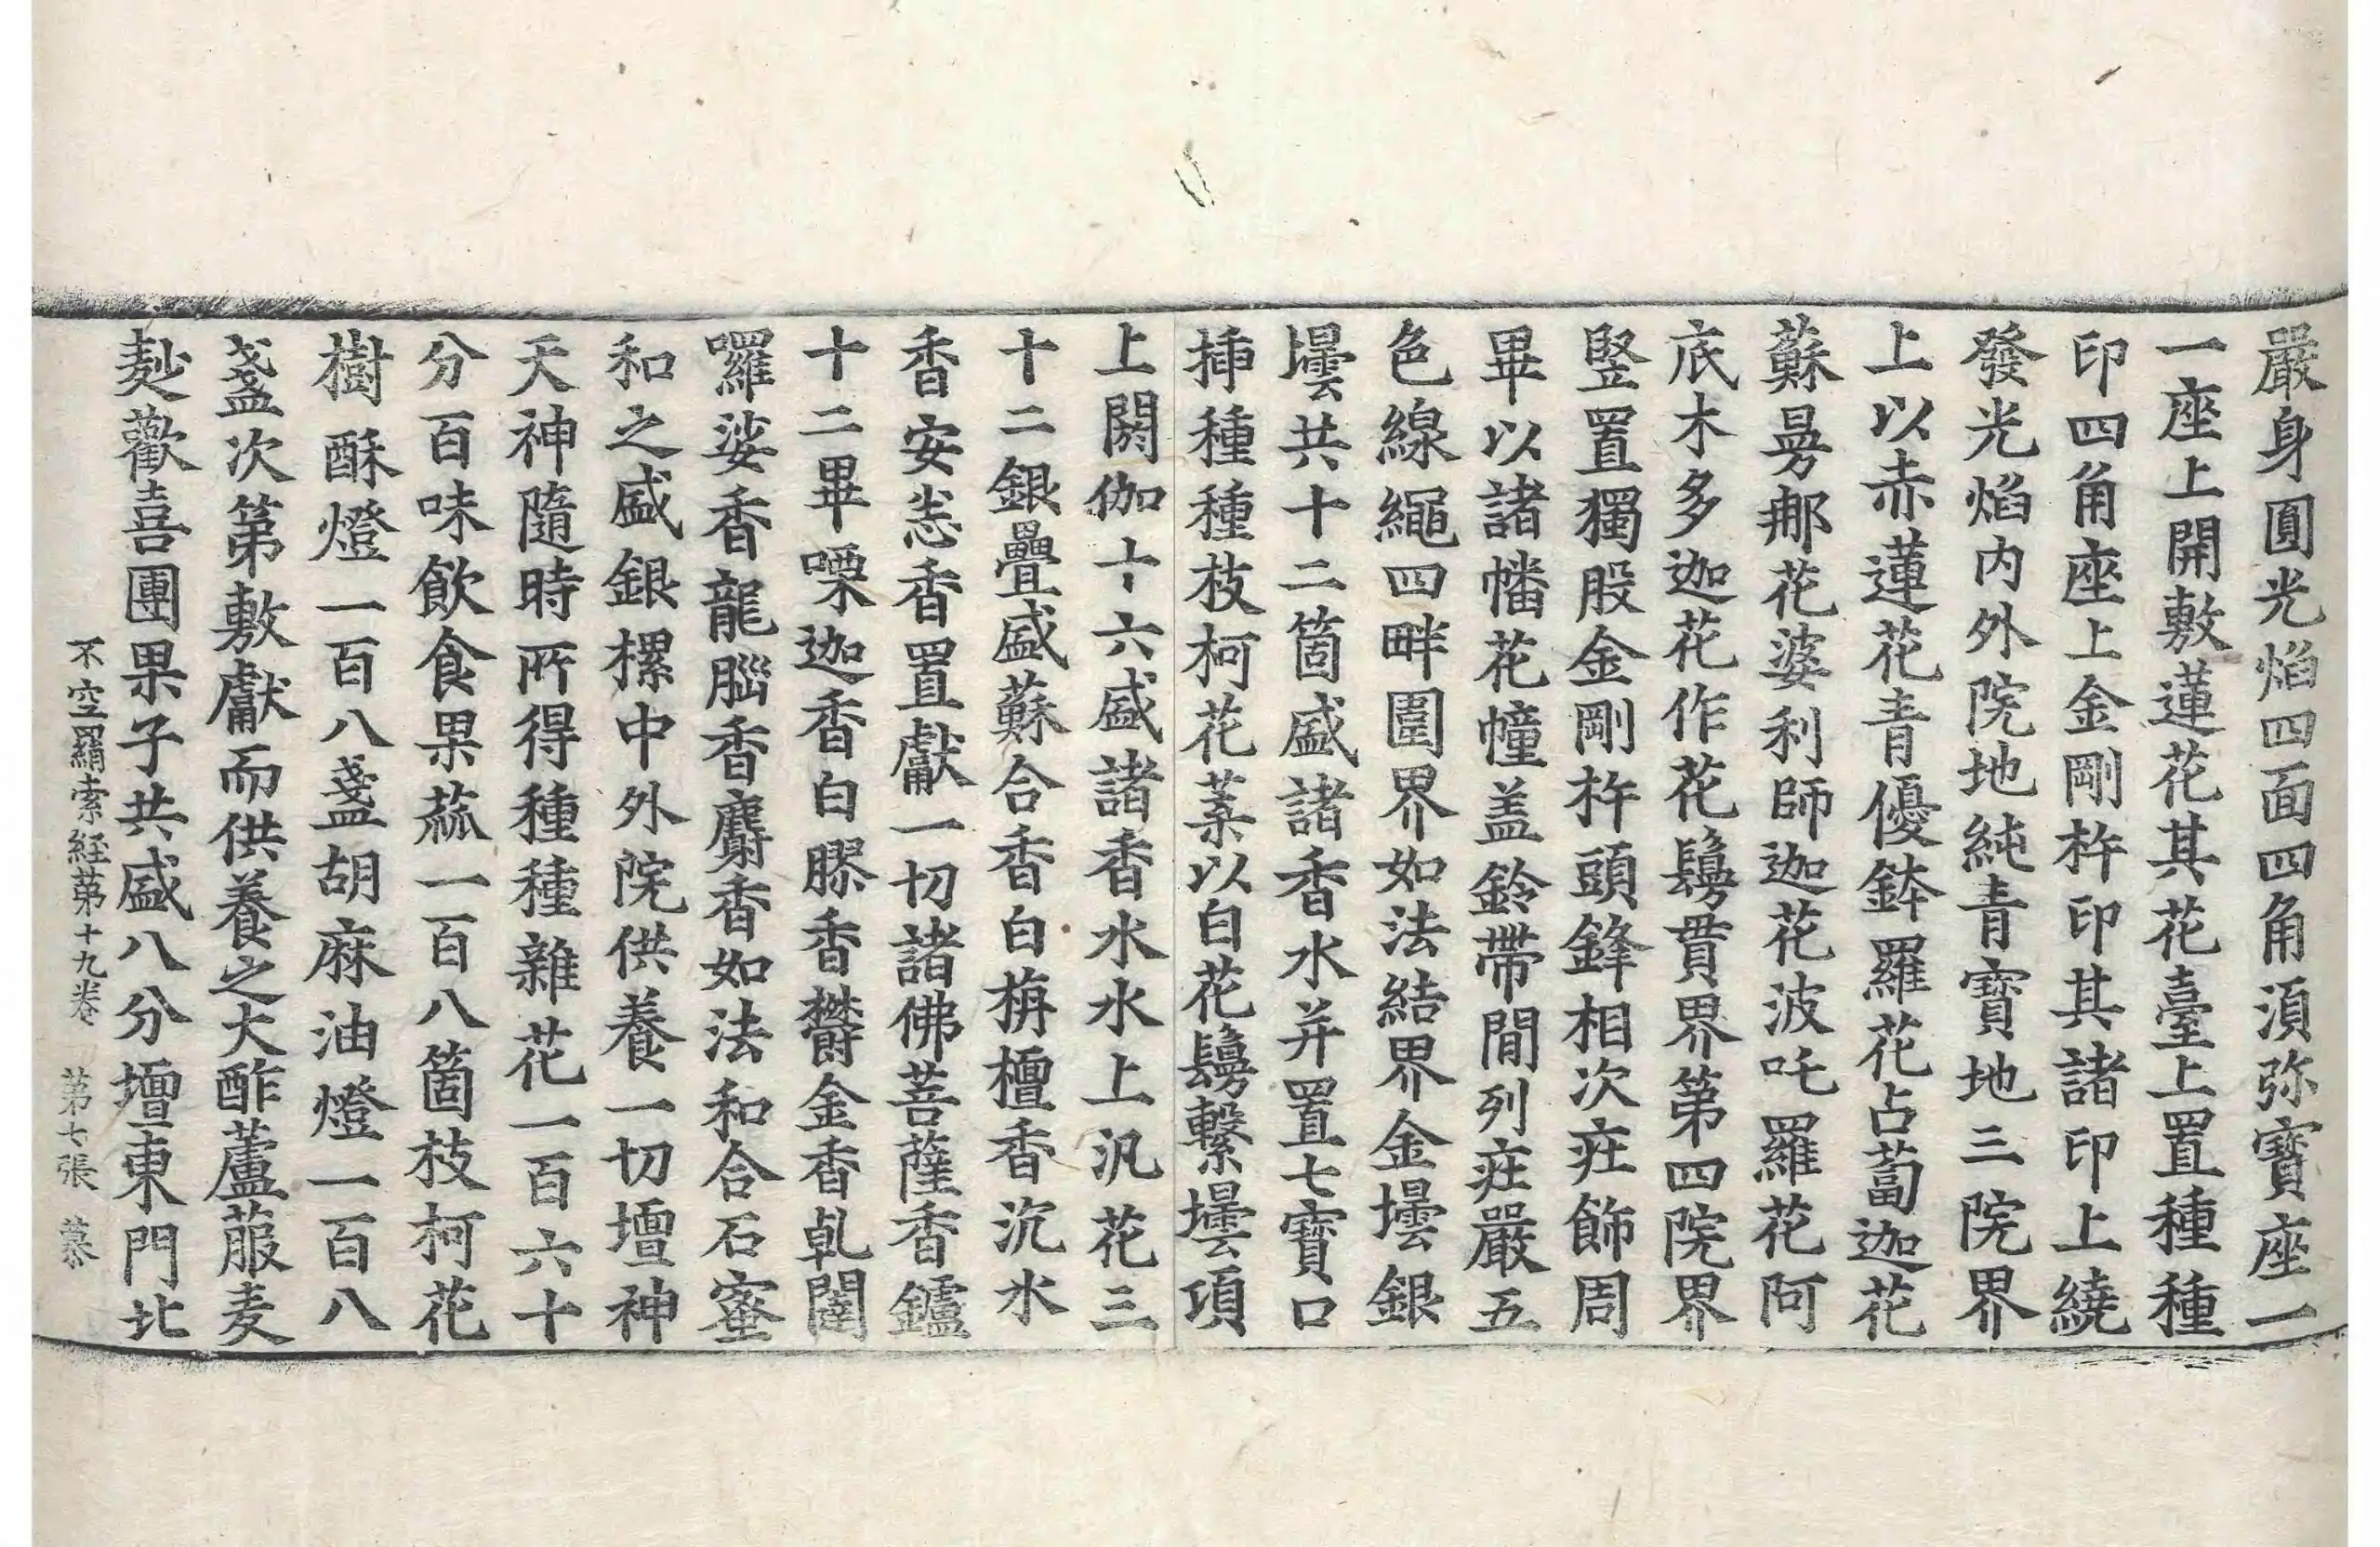 嚴身圓光焰四面四角湏弥寶座一
一座上開敷蓮花其花臺上置種種
印四角座上金剛杵印其諸印上繞
發光焰内外院地純青寶地三院界
上以赤蓮花青優鉢羅花占蔔迦花
蘇曼那花婆利師迦花波吒羅花阿
底木多迦花作花鬘貫界第四院界
竪置獨股金剛杵頭鋒相次莊飾周
畢以諸幡花幢盖鈴帶間列莊嚴五
色線繩四畔圍界如法結界金壜銀
壜共十二箇盛諸香水并置七寶口
揷種種枝柯花菓以白花鬘繫壜項
上閼伽十六盛諸香水水上汎花三
十二銀疊盛蘇合香白栴檀香沉水
香安悉香置獻一切諸佛菩薩香鑪
十二畢㗚迦香白膠香欝金香乹闥
囉娑香龍腦香麝香如法和合石蜜
和之盛銀摞中外院供養一切壇神
天神隨時所得種種雜花一百六十
分百味飲食果蓏一百八箇枝柯花
樹酥燈一百八盞胡麻油燈一百八
盞次第敷獻而供養之大酢蘆菔麦
麨歡喜團果子共盛八分壇東門北
不空羂索経第十九卷 第七張 慕